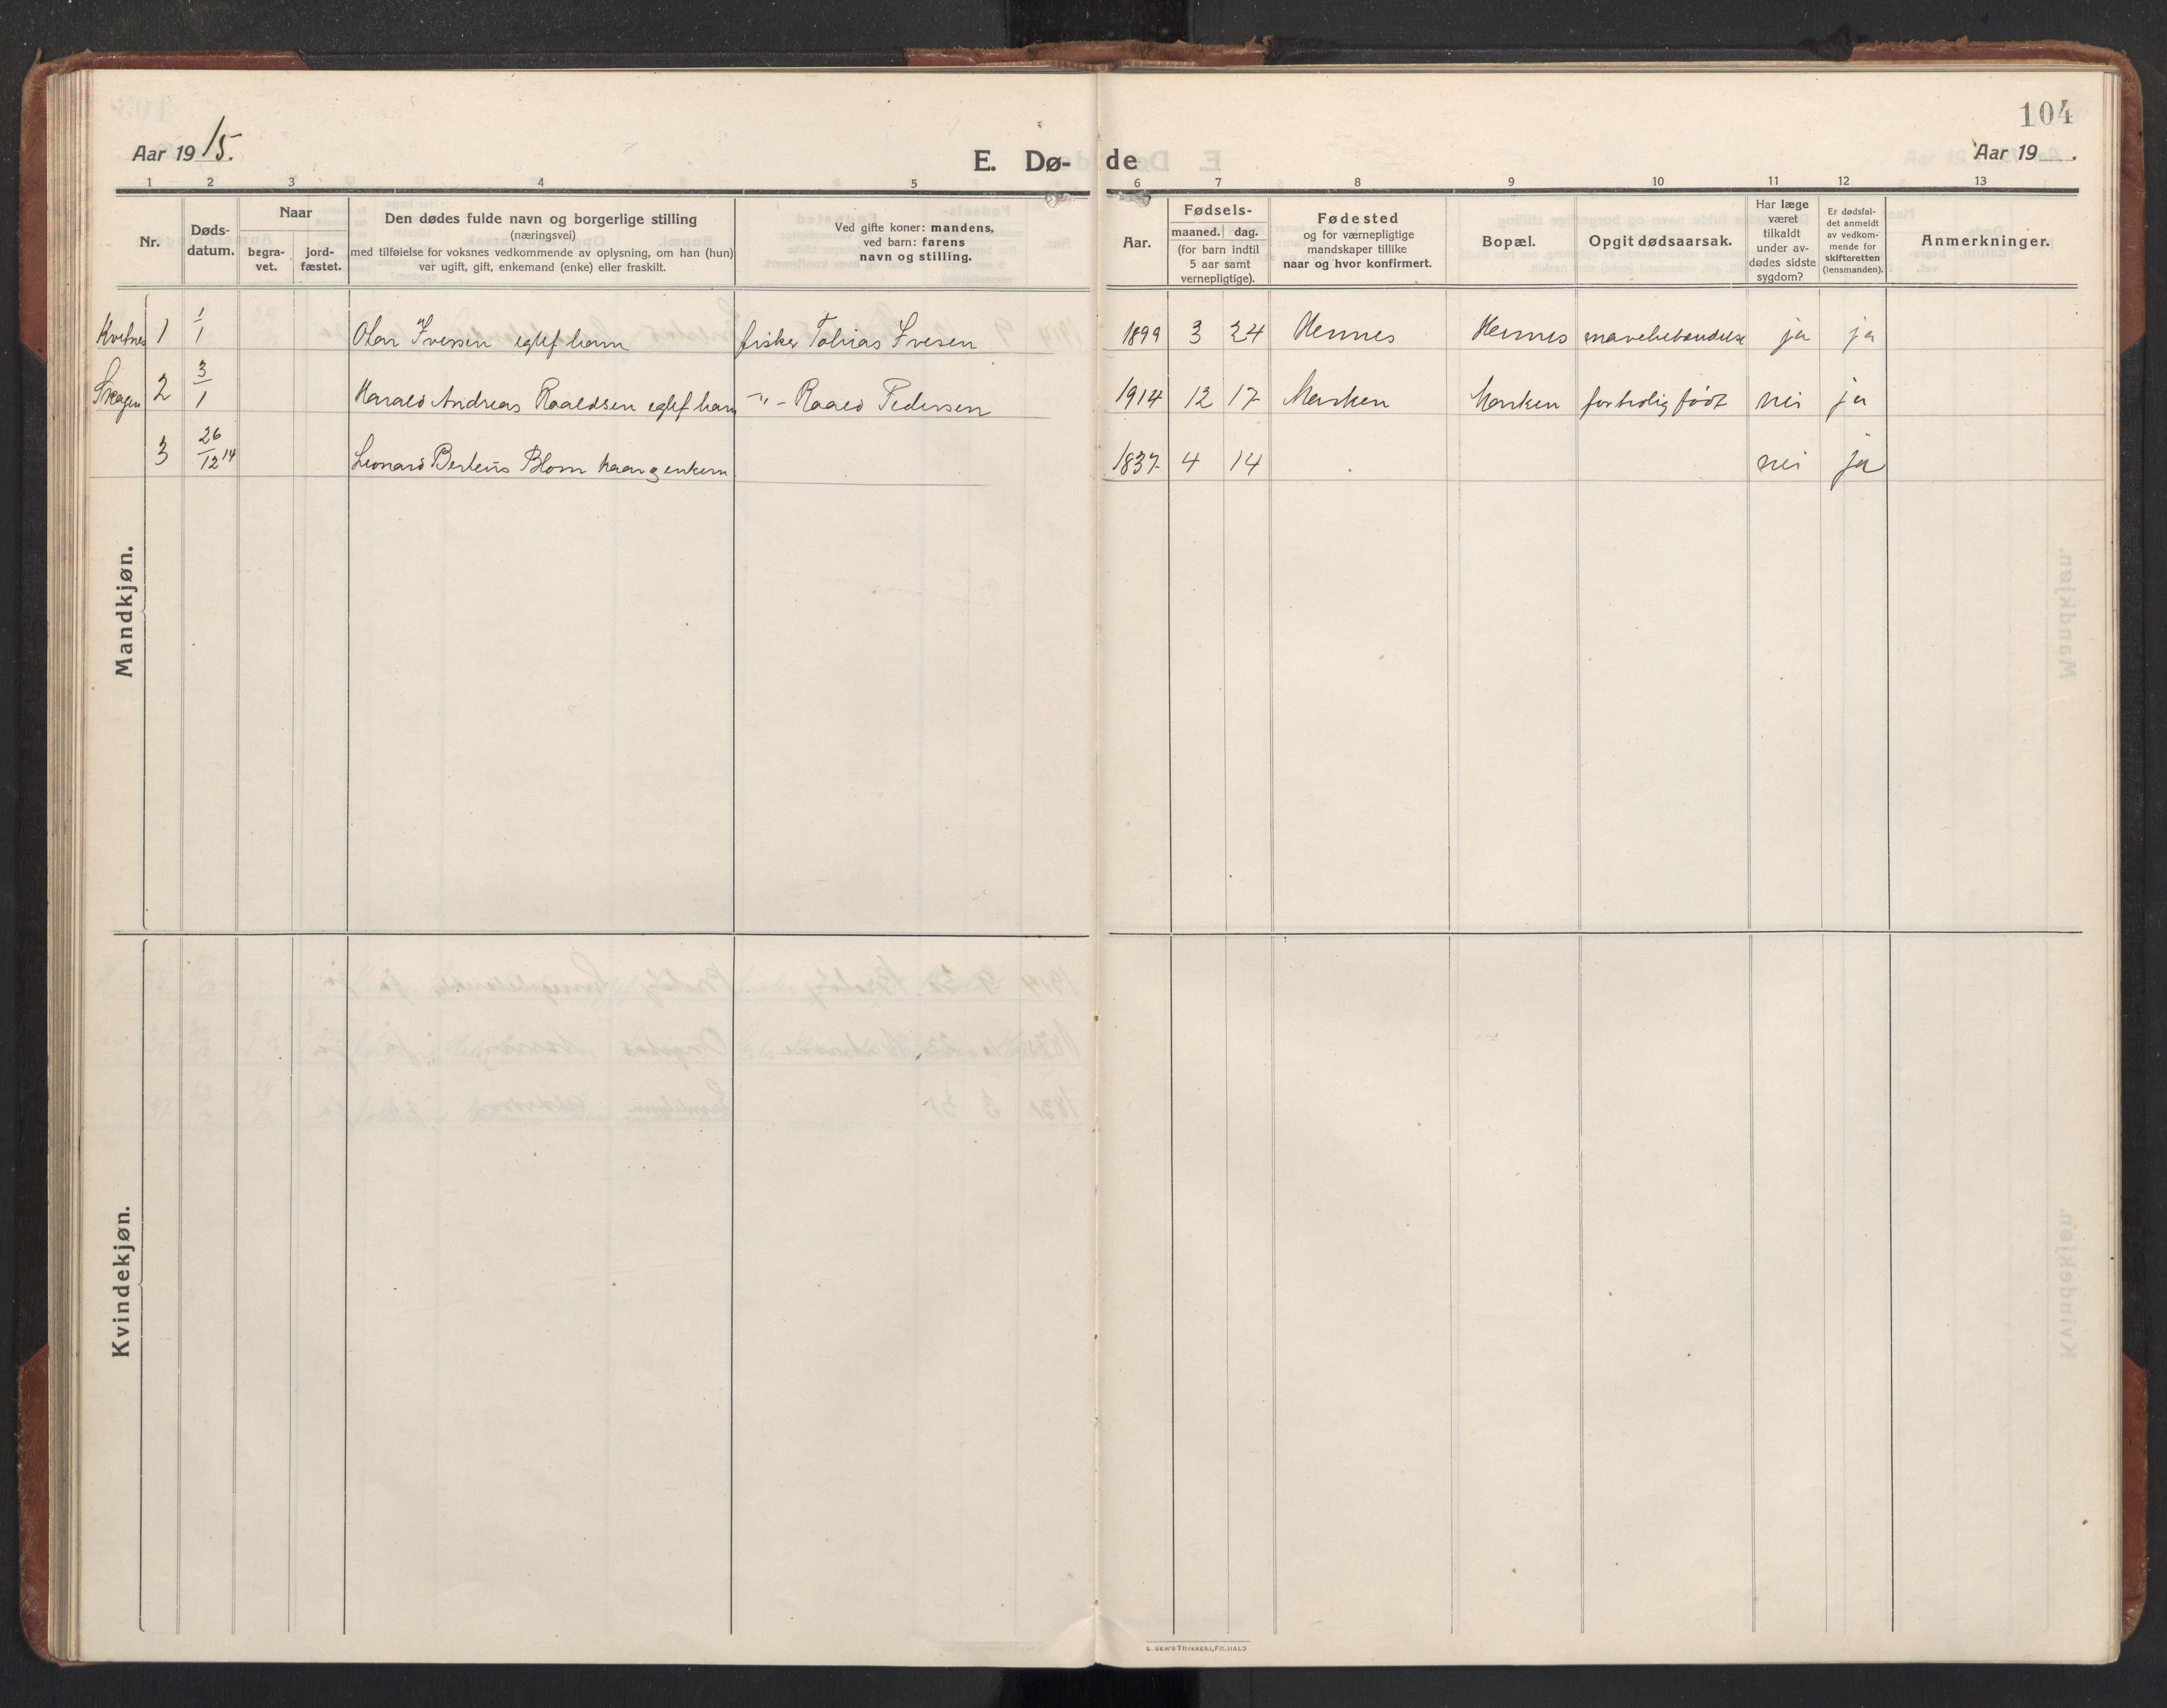 104
Aar 19 15.
E. Dø- de
Aar 19 .
1 2 3 4 5 6 7 8 9 10 11 12 13
Nr.
Døds-
datum.
Naar
begra-
vet.
jord-
fæstet.
Den dødes fulde navn og borgerlige stilling
(næringsvei)
med tilføielse for voksnes vedkommende av oplysning, om han (hun)
var ugift, gift, enkemand (enke) eller fraskilt.
Ved gifte koner: mandens,
ved barn: farens
navn og stilling.
Aar.
Fødsels-
maaned. dag.
(for barn indtil
5 aar samt
vernepligtige).
Fødested
og for værnepligtige
mandskaper tillike
naar og hvor konfirmert.
Bopæl.
Opgit dødsaarsak.
Har læge
været
tilkaldt
under av-
dødes sidste
sygdom?
Er dødsfal-
det anmeldt
av vedkom-
mende for
skifteretten
(lensmanden).
Anmerkninger.
1 1/1 Olav Iversen egtef barn fisker Tobias Ivesen 1899 3 24 Hennes Hennes mavebetændelse ja ja
2 3/1 Harald Andreas Roaldsen egtef barn -"- Roald Pedersen 1914 12 17 Manken Manken fortidlig født nei ja
3 26/12 14 Leonard Berteus Blom enkem 1837 4 14 nei ja
Mandkjøn.
Kvindekjøn.